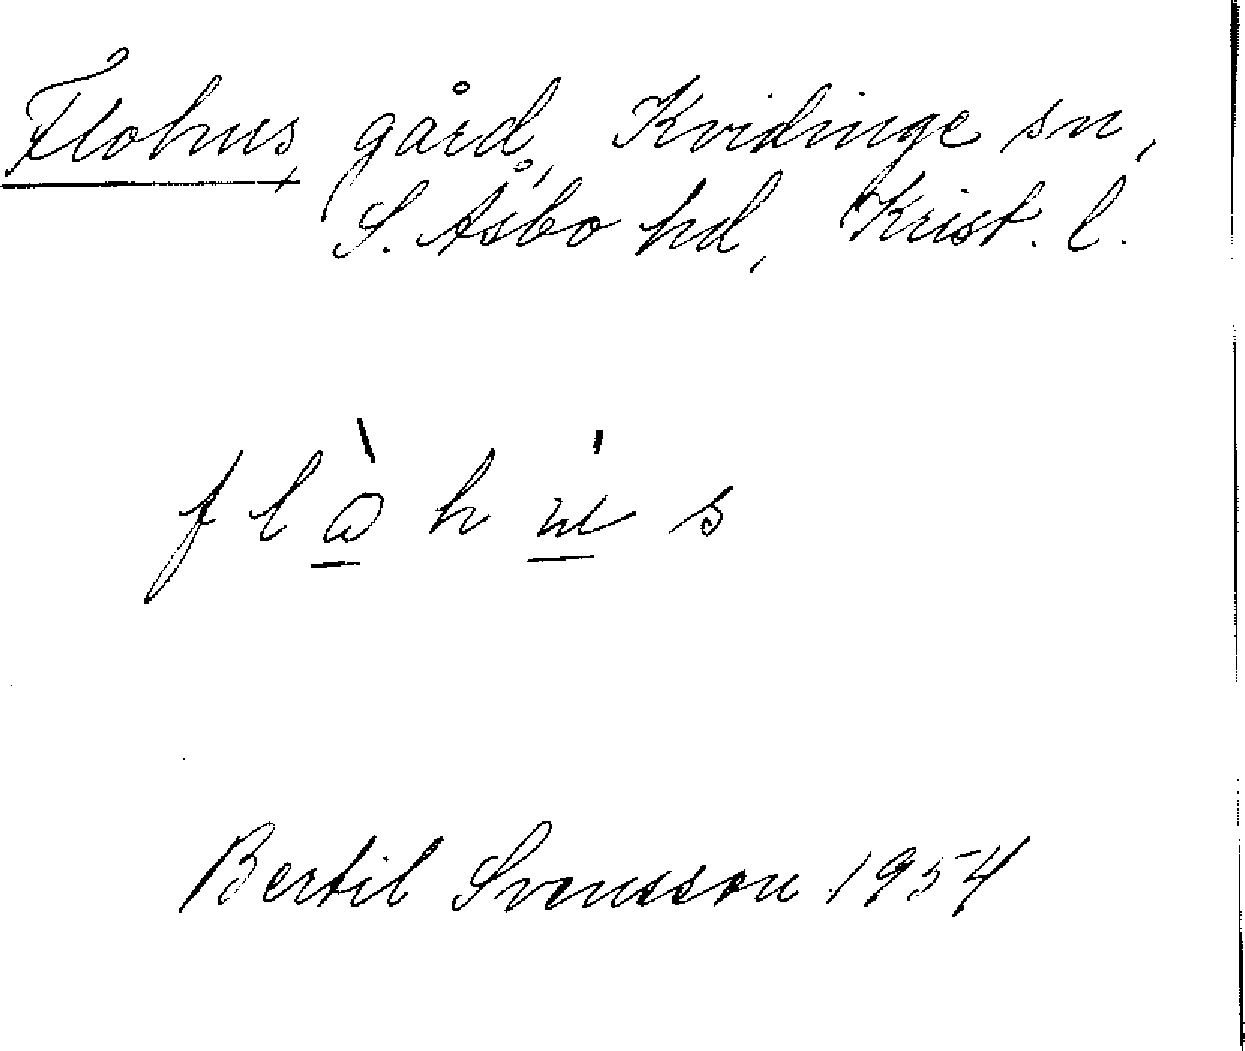 Flohus, gård, Kvidinge sn,
S. Åsbo hd, Krist. l.
f l ὼ h ɯ́ s
Bertil Svensson 1954